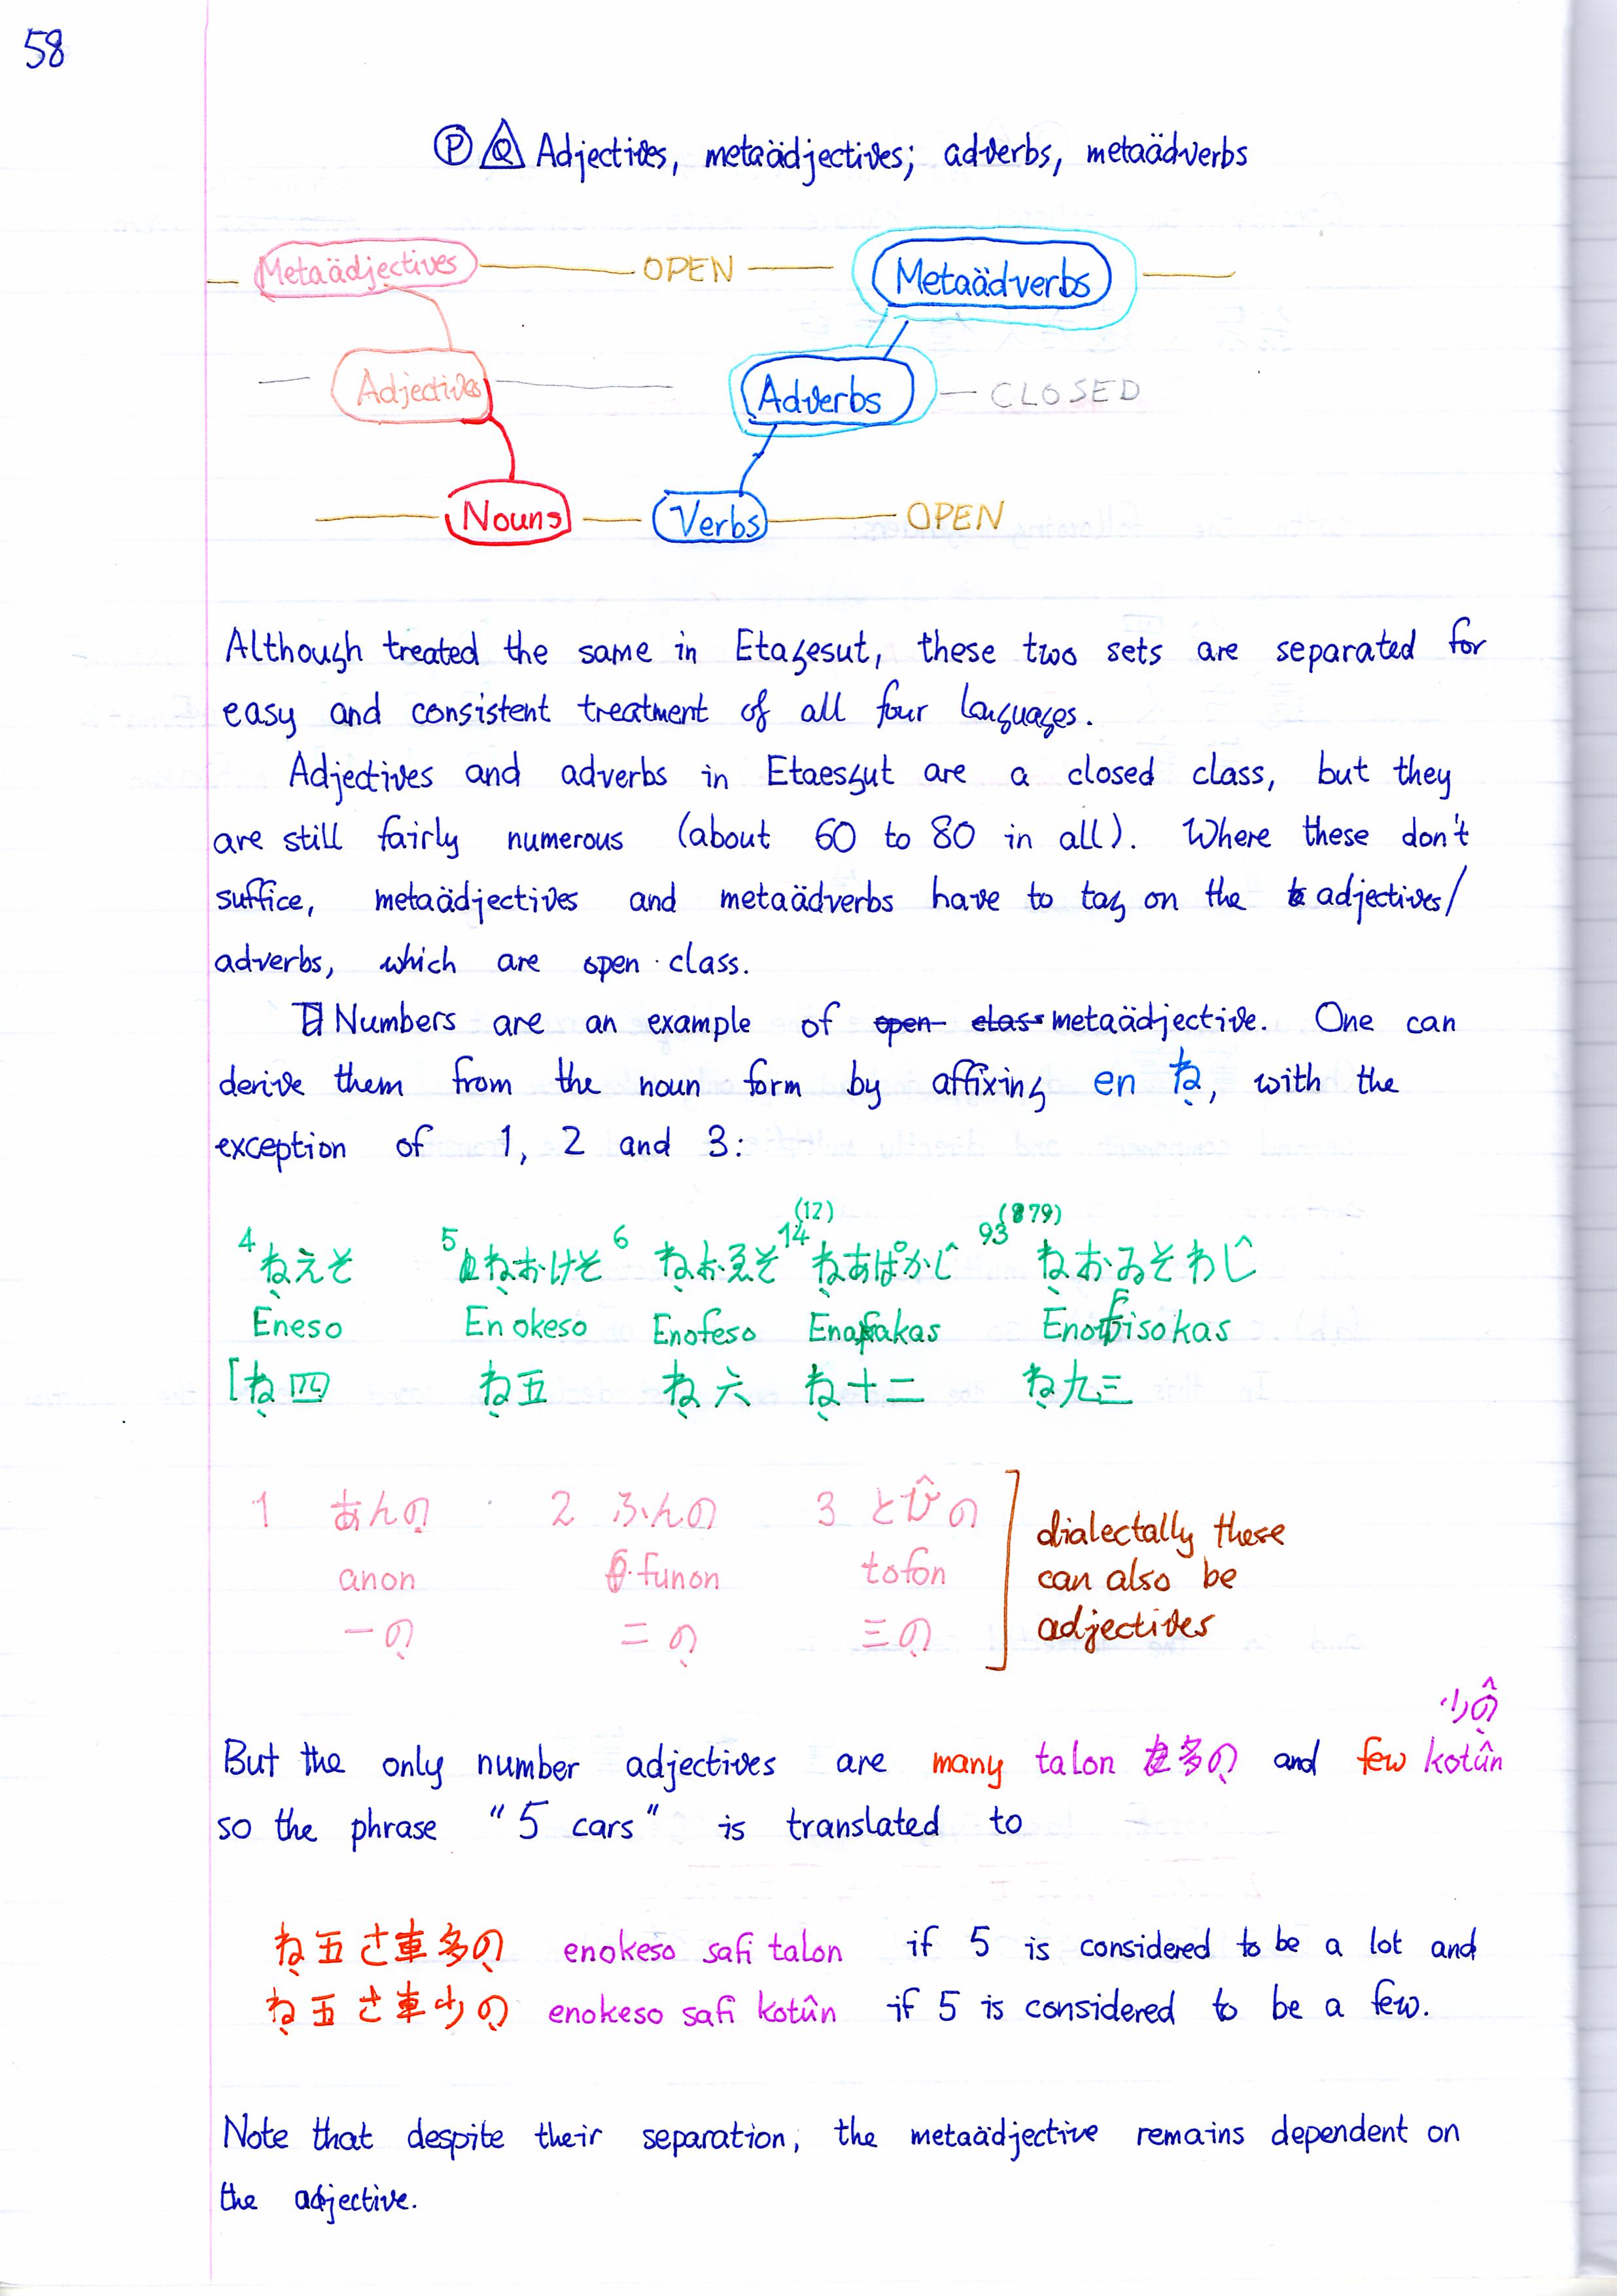 58
Ⓟ Q Adjectives, metaädjectives; adverbs, metaädverbs
Metaädjectives OPEN Metaädverbs
Adjectives Adverbs CLOSED
Nouns Verbs OPEN
Although treated the same in Etagesut, these two sets are separated for
easy and consistent treatment of all four languages.
Adjectives and adverbs in Etaesgut are a closed class, but they
are still fairly numerous (about 60 to 80 in all). Where these don't
suffice, metaädjectives and metaädverbs have to tag on the adjectives/
adverbs, which are open class.
Numbers are an example of open class metaädjective. One can
derive them from the noun form by affixing en ね, with the
exception of 1, 2 and 3:
(12) (879)
4 ねえそ 5 ねおけそ 6 ねおゑそ 14 ねあぱかじ 93 ねおゐそわじ
Eneso Enokeso Enofeso Enafakas Enofisokas
[ね四 ね五 ね六 ね十二 ね九三
1 あんの 2 ふんの 3 とびの
anon funon tofon
一の 二の 三の
dialectally these
can also be
adjectives
少の
But the only number adjectives are many talon 多の and few kotûn
so the phrase "5 cars" is translated to
ね五さ車多の enokeso safi talon if 5 is considered to be a lot and
ね五さ車少の enokeso safi kotûn if 5 is considered to be a few.
Note that despite their separation, the metaädjective remains dependent on
the adjective.